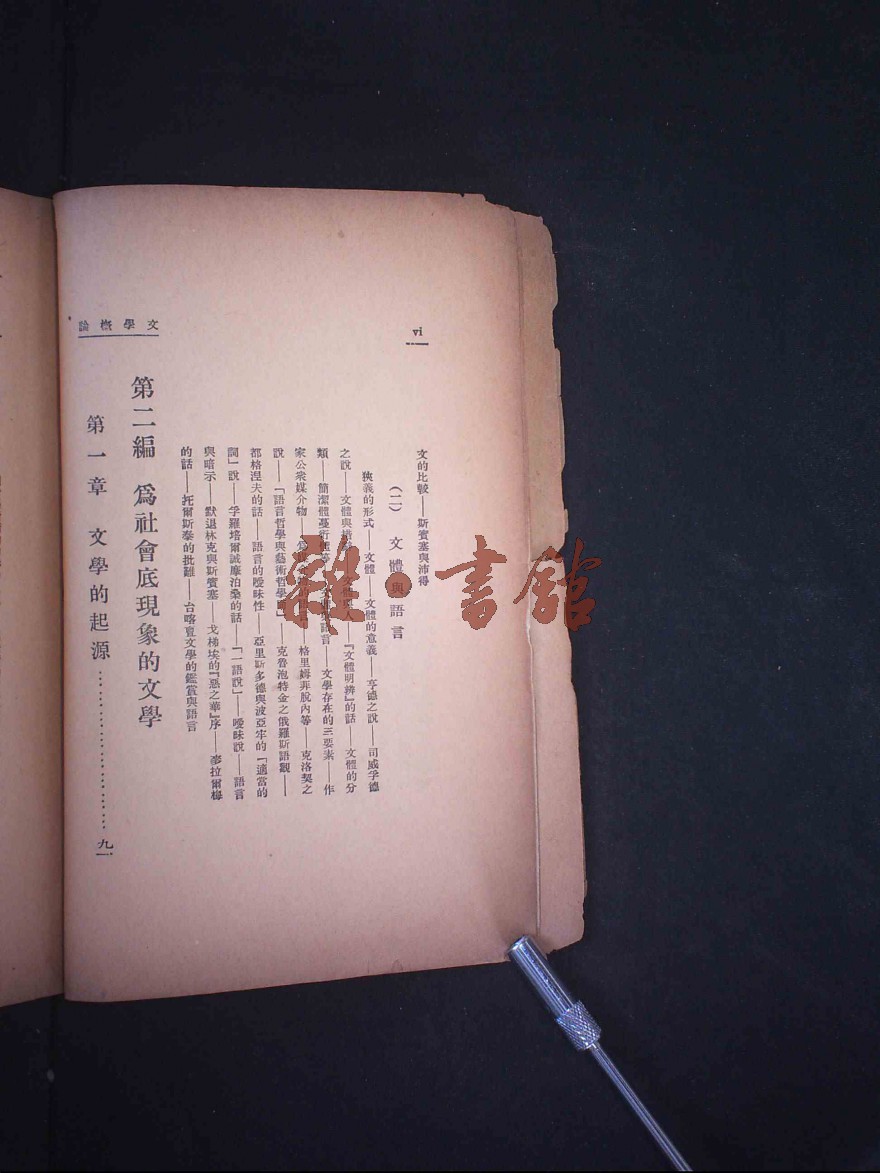 vi
文學概論
文的比較——斯賓塞與沛得
(二) 文體與語言
狹義的形式——文體——文體的意義——亨德之說——司威孚德
之說——文體與 文體與人——『文體明辨』的話——文體的分
類——簡潔體蔓衍體等——文學與語言——文學存在的三要素——作
家公衆媒介物—— 格里姆菲脫內等——克洛契之
說——「語言哲學與藝術哲學 」——克魯泡特金之俄羅斯語觀——
都格涅夫的話——語言的曖昧性——亞里斯多德與波亞牢的「適當的
詞」說——孚羅培爾誡摩泊桑的話——「一語說」——曖昧說——語言
與暗示——默退林克與斯賓塞——戈梯埃的『惡之華』序——麥拉爾梅
的話——托爾斯泰的批難——台喀耷文學的鑑賞與語言
第二編 爲社會底現象的文學
第一章 文學的起源…………………九一
雜·書館